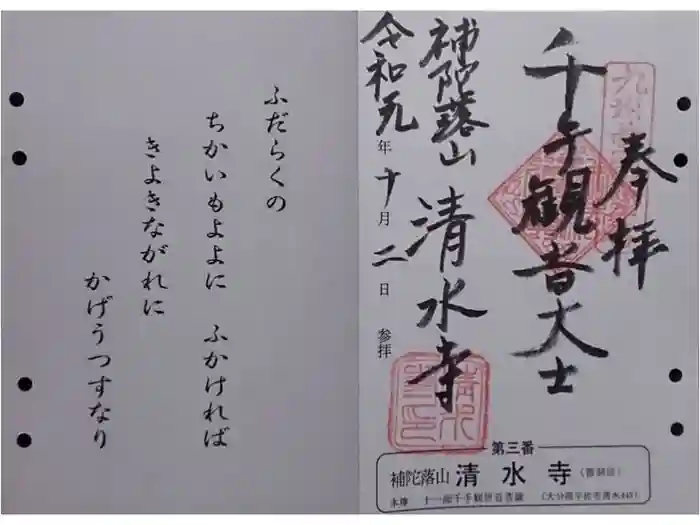 奉拝
千手観音大士
補陀落山 清水寺
令和元年十月二日 参拝
第三番
補陀落山 清水寺
本尊 十一面千手観世音菩薩
ふだらくの
ちかいもよよに ふかければ
きよきながれに
かげうつすなり